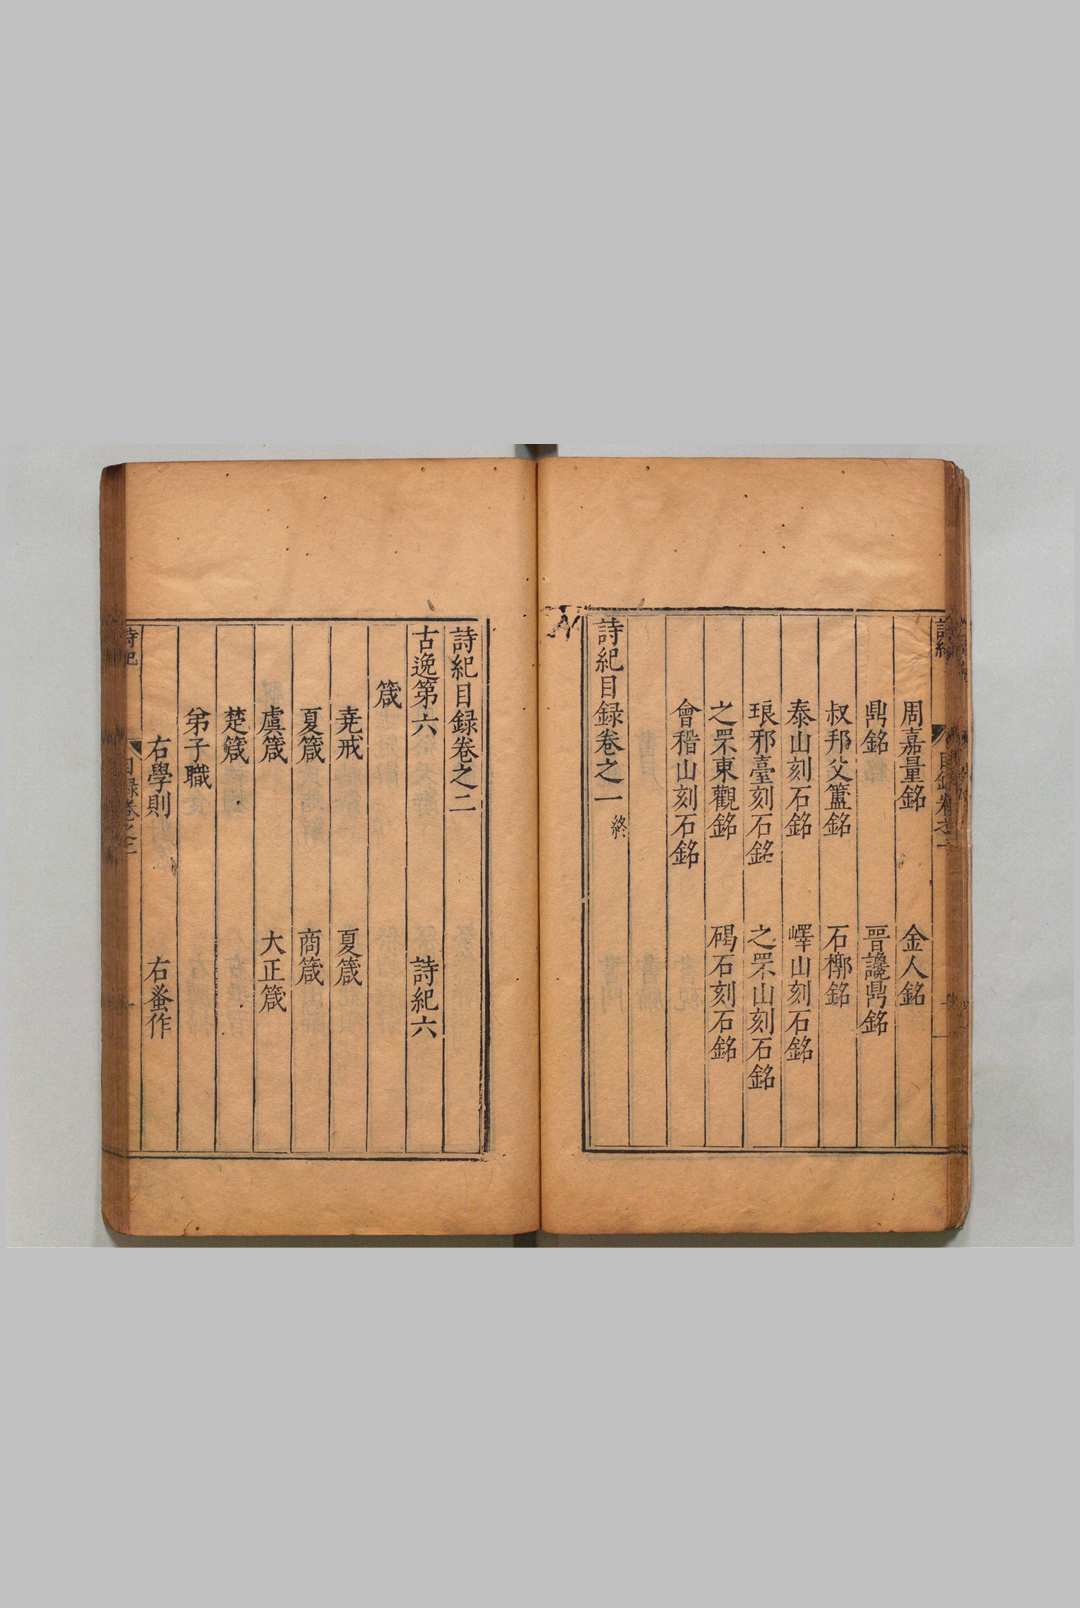 周嘉量銘　金人銘
鼎銘　晉讒鼎銘
叔邦父簠銘　石槨銘
泰山刻石銘　嶧山刻石銘
琅邪臺刻石銘　之罘山刻石銘
之罘東觀銘　碣石刻石銘
會稽山刻石銘
詩紀目録卷之一終
詩紀目録卷之二
古逸第六　詩紀六
箴
堯戒　夏箴
夏箴　商箴
虞箴　大正箴
楚箴
弟子職
右學則　右蚤作
詩紀
目録卷之二